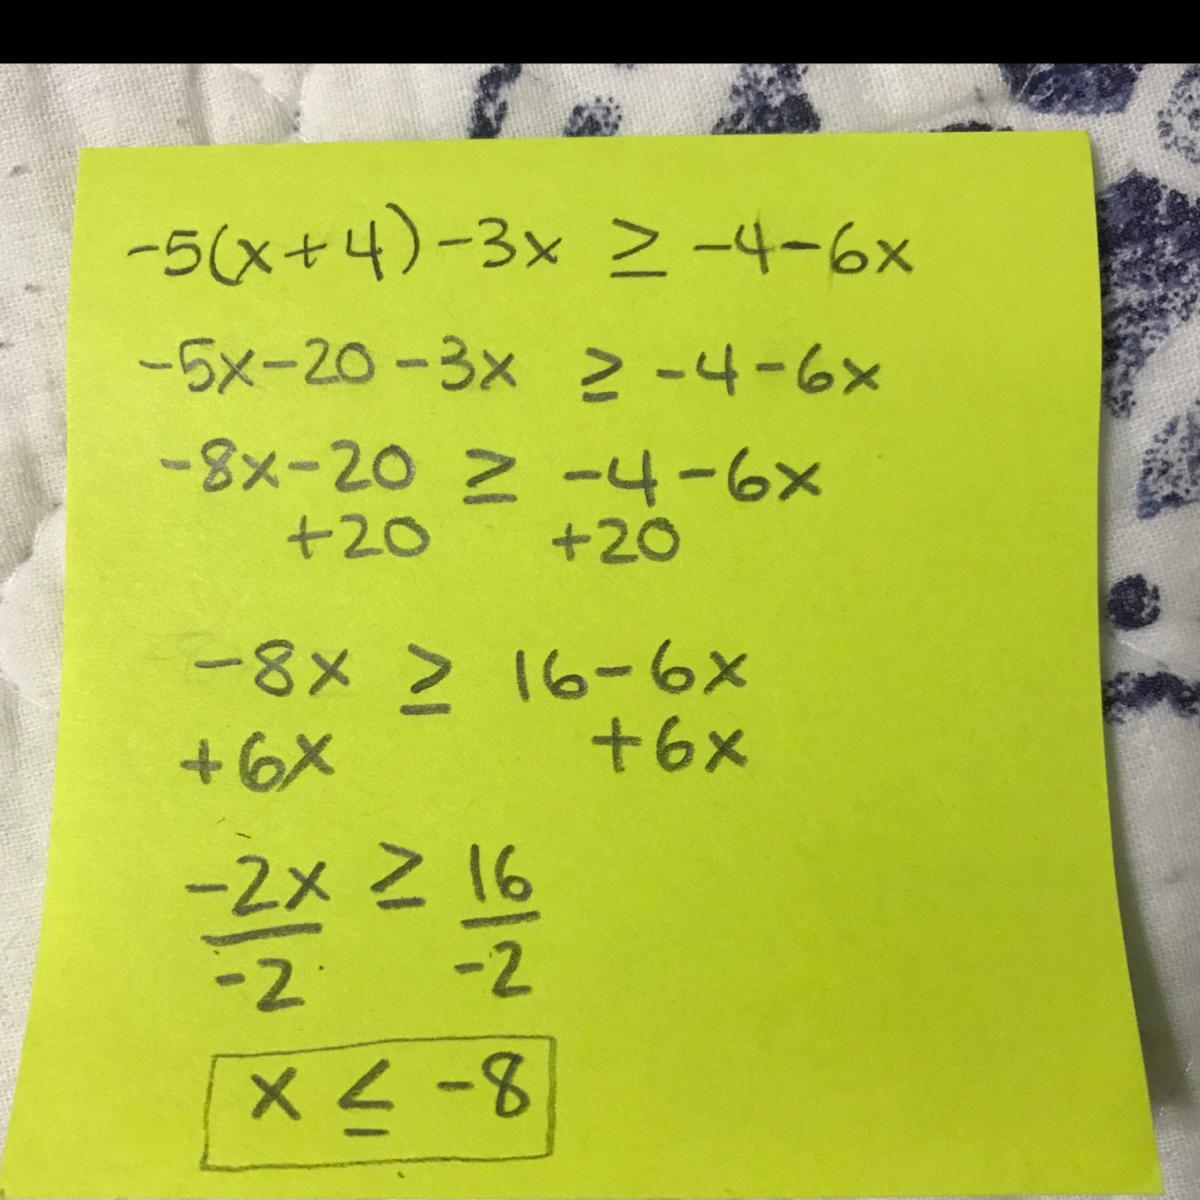 -5(x+4)-3x ≥ -4-6x
-5x-20-3x ≥ -4-6x
-8x-20 ≥ -4-6x
+20 +20
-8x ≥ 16-6x
+6x +6x
-2x ≥ 16
-2 -2
x ≤ -8